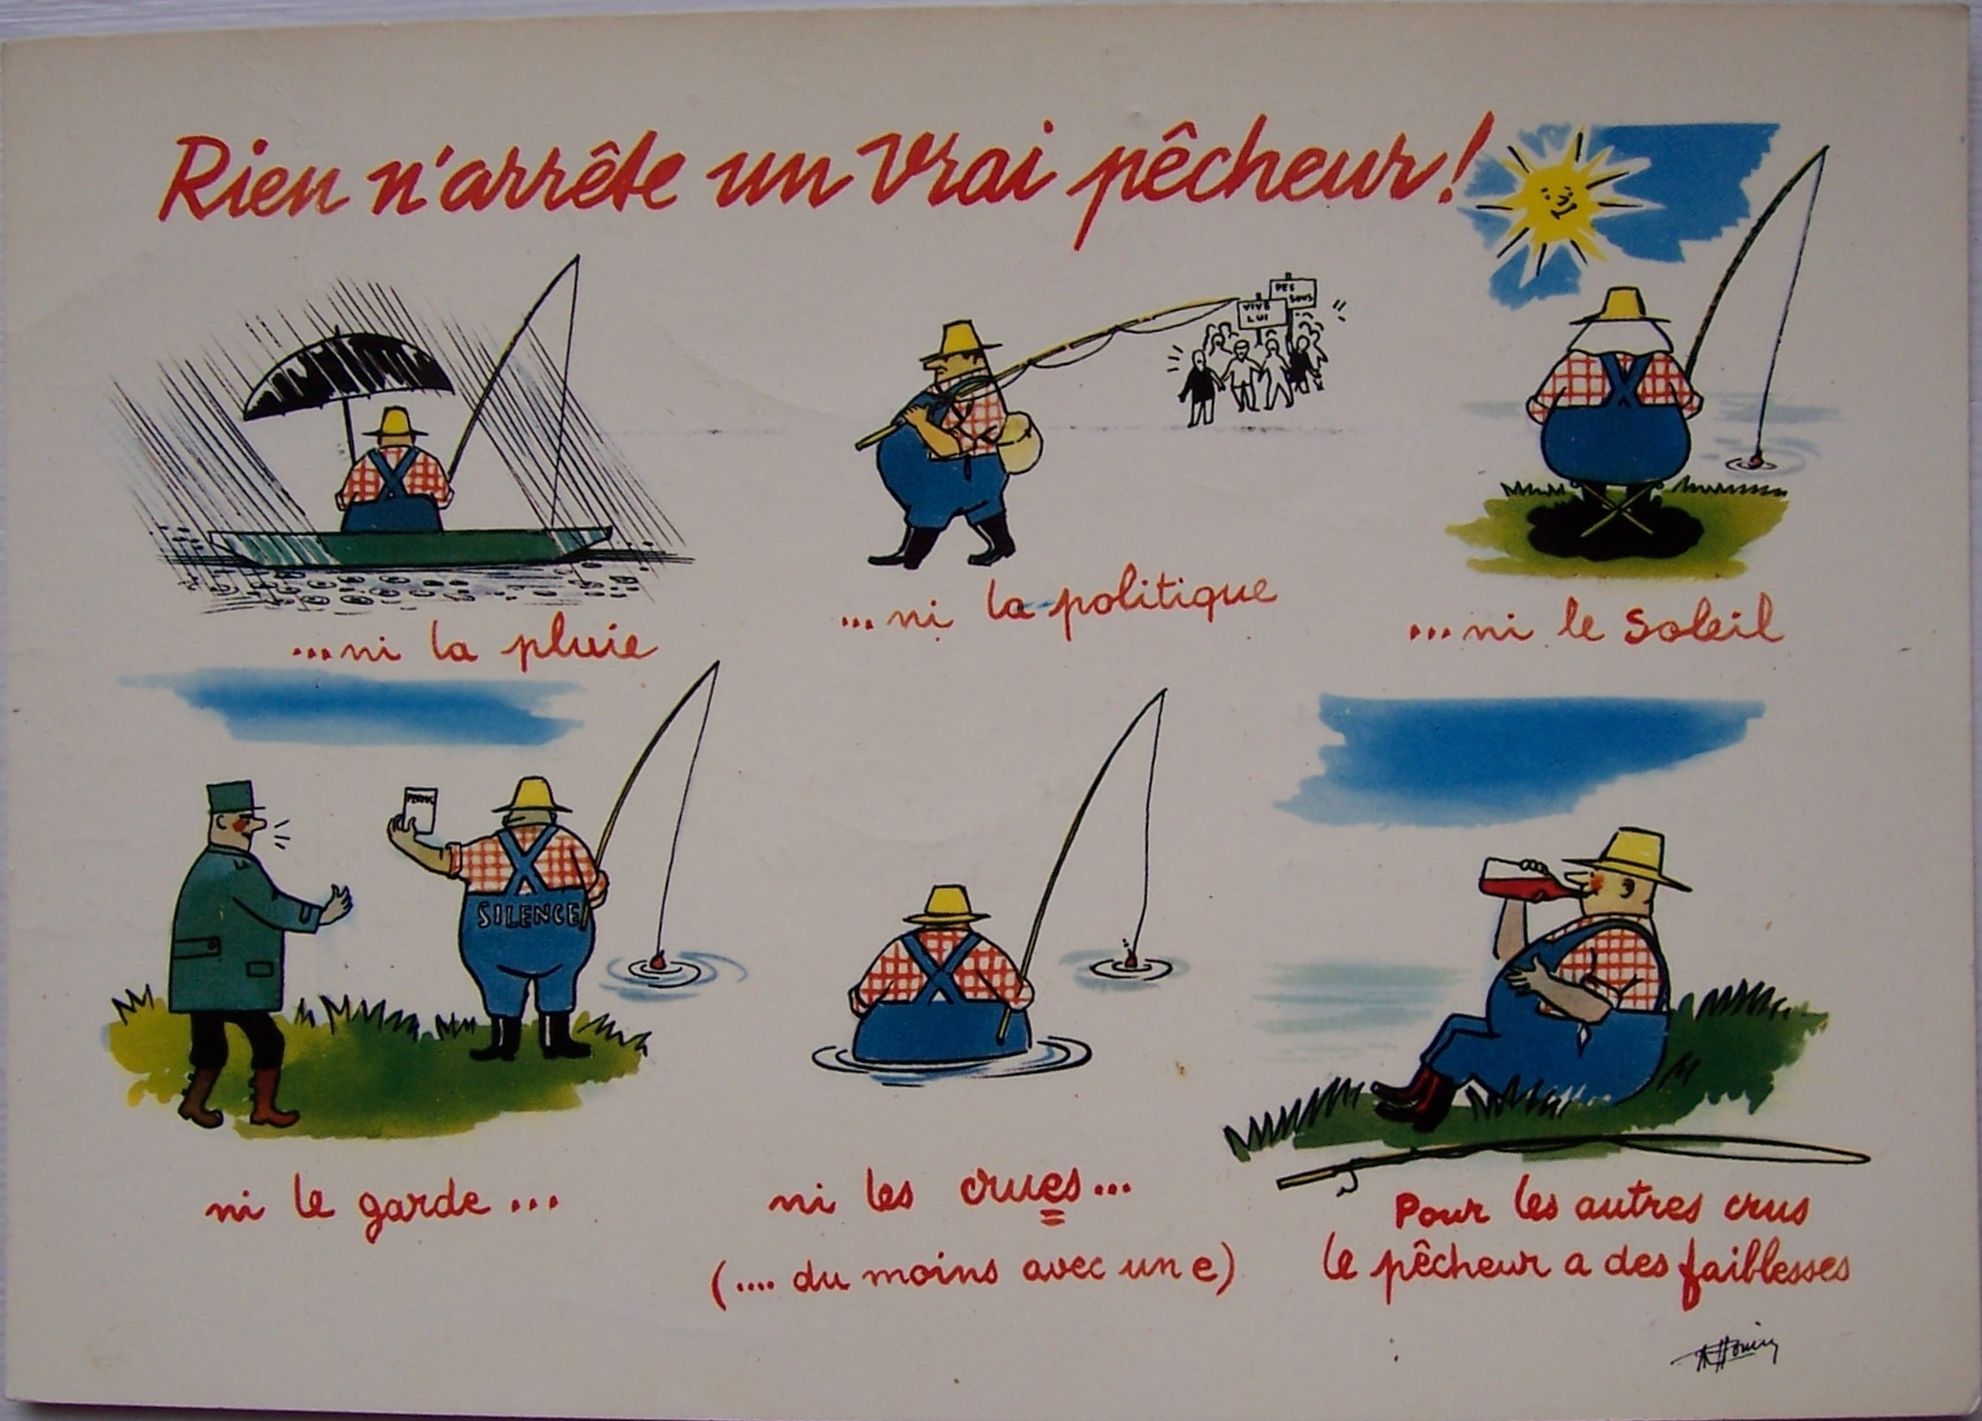 Rien n'arrête un vrai pêcheur!
VIVE
LUI
DES
SOUS
...ni la pluie
...ni la politique
...ni le soleil
PERMIS
SILENCE
ni le garde...
ni les crues...
(.... du moins avec un e)
Pour les autres crus
le pêcheur a des faiblesses